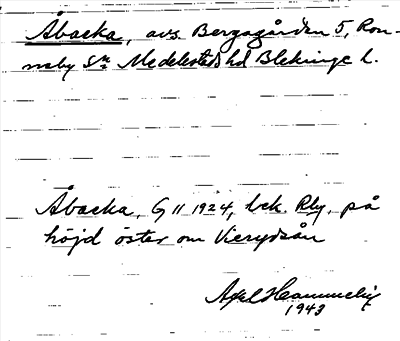 Åbacka, avs. Bergsgården 5, Ron-
neby Sn Medelstads hd Blekinge l.
Åbacka, G 11 1924, bek. Rby, på
höjd öster om Vierydsån
Axel
1943